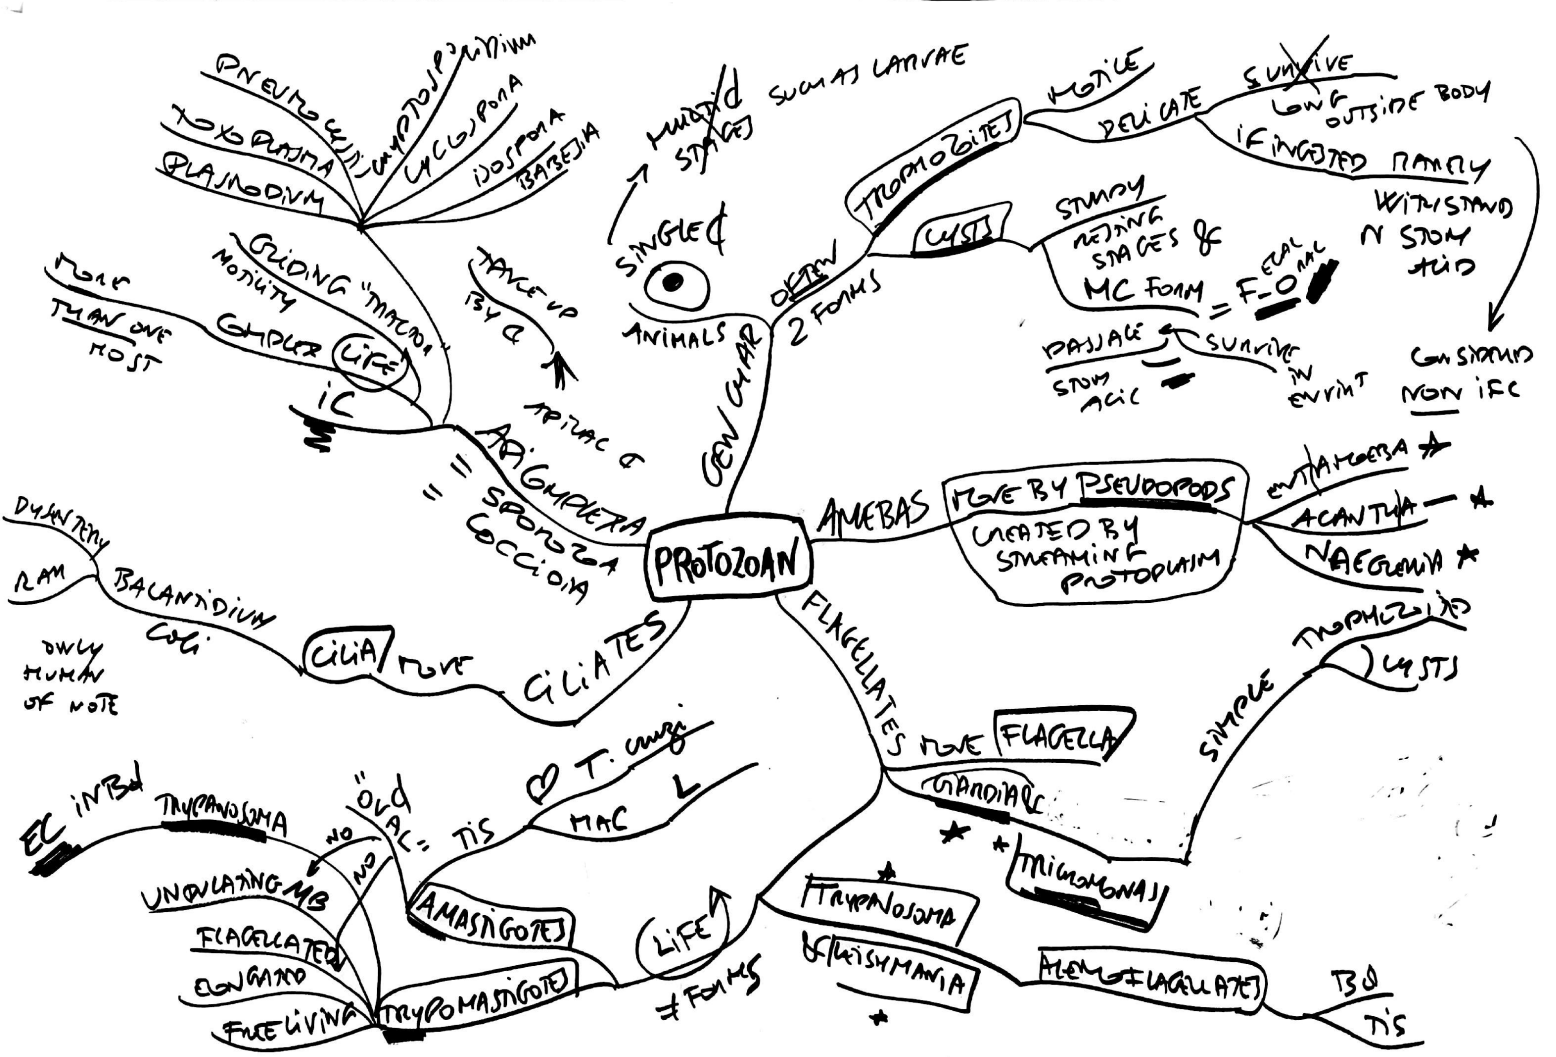 PROTOZOAN
GEN CHAR
ANIMALS
SINGLE ¢
SUCH AS LARVAE
STAGES
OFTEN
2 FORMS
TROPHOZOITES
MOTILE
DELICATE
SURVIVE
LONG
OUTSIDE BODY
IF INGESTED RARELY
WITHSTAND
STOM
ACID
CONSIDERED
NON iFC
CYSTS
STURDY
RESTING
STAGES &
MC FORM = F-O
ECAL RAL
PASSAGE
STOM
ACIC
SURVIVE
IN
AMEBAS
MOVE BY PSEUDOPODS
CREATED BY
STREAMING
PROTOPLASM
ENTAMOEBA ★
ACANTHA — ★
NAEGLERIA ★
FLAGELLATES
MOVE FLAGELLA
GIARDIA &
★ ★
TRICHOMONAS
SIMPLE
TROPHOZOITES
CYSTS
TRYPANOSOMA
★
& LEISHMANIA
★
HEMOFLAGELLATES
Bd
TiS
LiFE
≠ FORMS
AMASTIGOTES
TiS
♡ T. cruzi
MAC L
"OVAL"
NO
NO
TRYPOMASTIGOTES
TRYPANOSOMA
EC iN Bd
UNDULATING MB
FLAGELLATED
ELONGATED
FREE LiVING
CiLiATES
MOVE
CiLIA
BALANTIDIUM
COLi
DYSENTERY
RAM
ONLY
HUMAN
OF NOTE
APiCOMPLEXA
= SPOROZOA
= COCCIDIA
iC
LiFE
COMPLEX
MORE
THAN ONE
HOST
GLIDING
MOTILITY
TAKE UP
BY ¢
APICAL ¢
PNEUMOCYSTiS
TOXOPLASMA
PLASMODIUM
CRYPTOSPORIDIUM
CYCLOSPORA
ISOSPORA
BABESIA